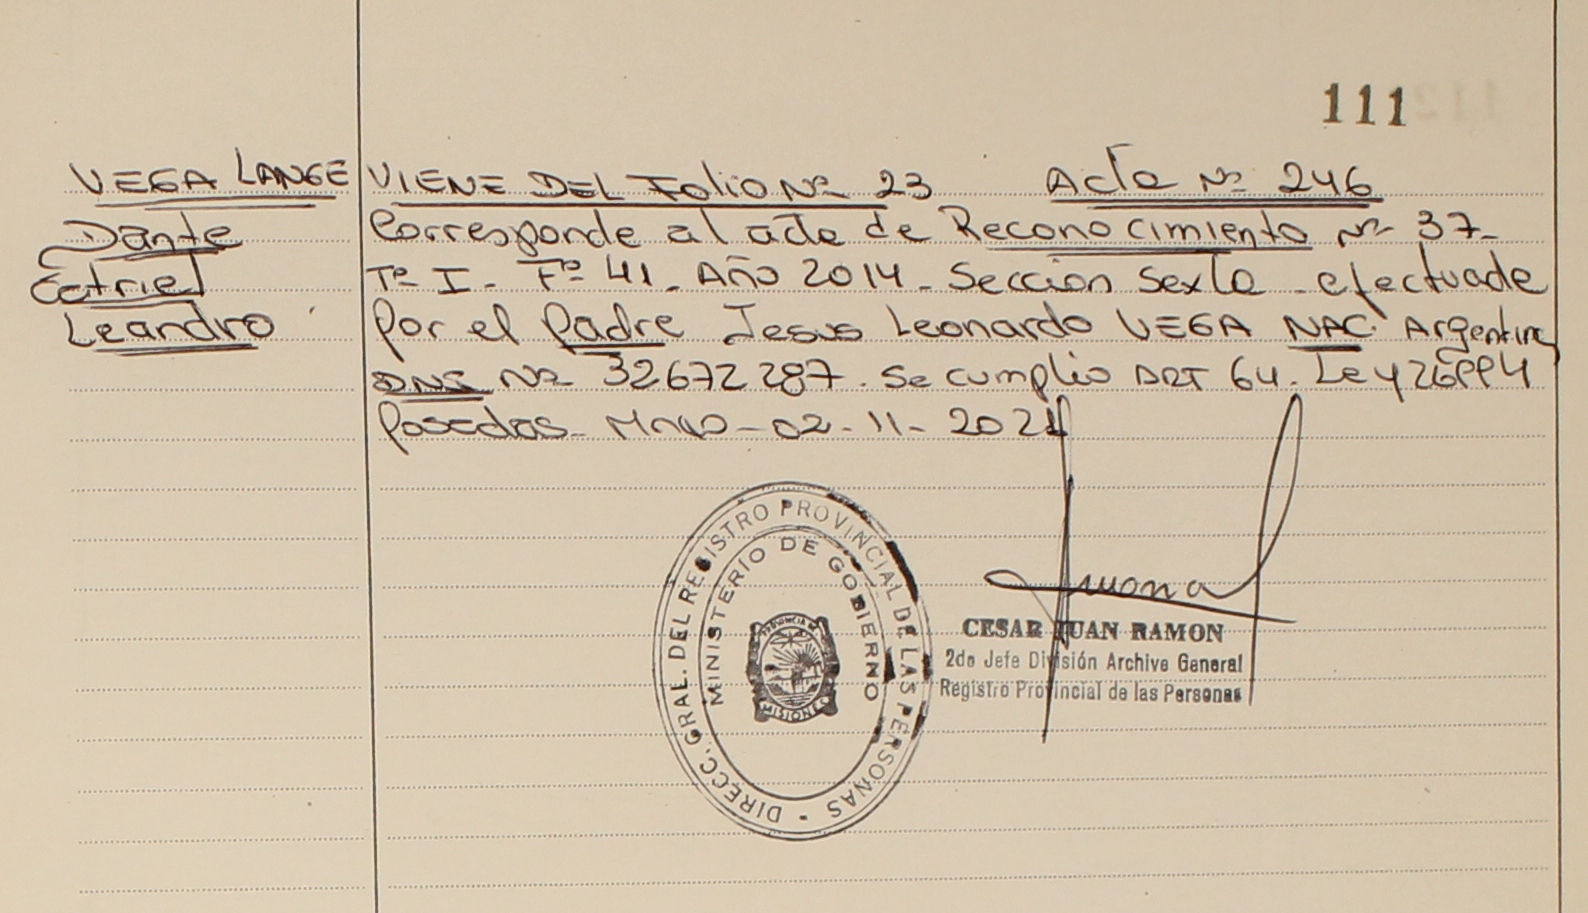 111
VEGA LANGE VIENE DEL Folio Nº 23 Acta Nº 246
Dante Corresponde al acta de Reconocimiento Nº 37-
Catriel Tº I - Fº 41 - AÑO 2014 - Sección Sexta - efectuada
Leandro Por el Padre Jesus Leonardo VEGA NAC Argentina
DNI Nº 32672287. Se cumplio ART 64. Ley 26994
Posadas - Mnes - 02-11-2021
DIRECC. GRAL. DEL REGISTRO PROVINCIAL DE LAS PERSONAS
MINISTERIO DE GOBIERNO
PROVINCIA DE
MISIONES
CESAR JUAN RAMON
2do Jefe División Archivo General
Registro Provincial de las Personas